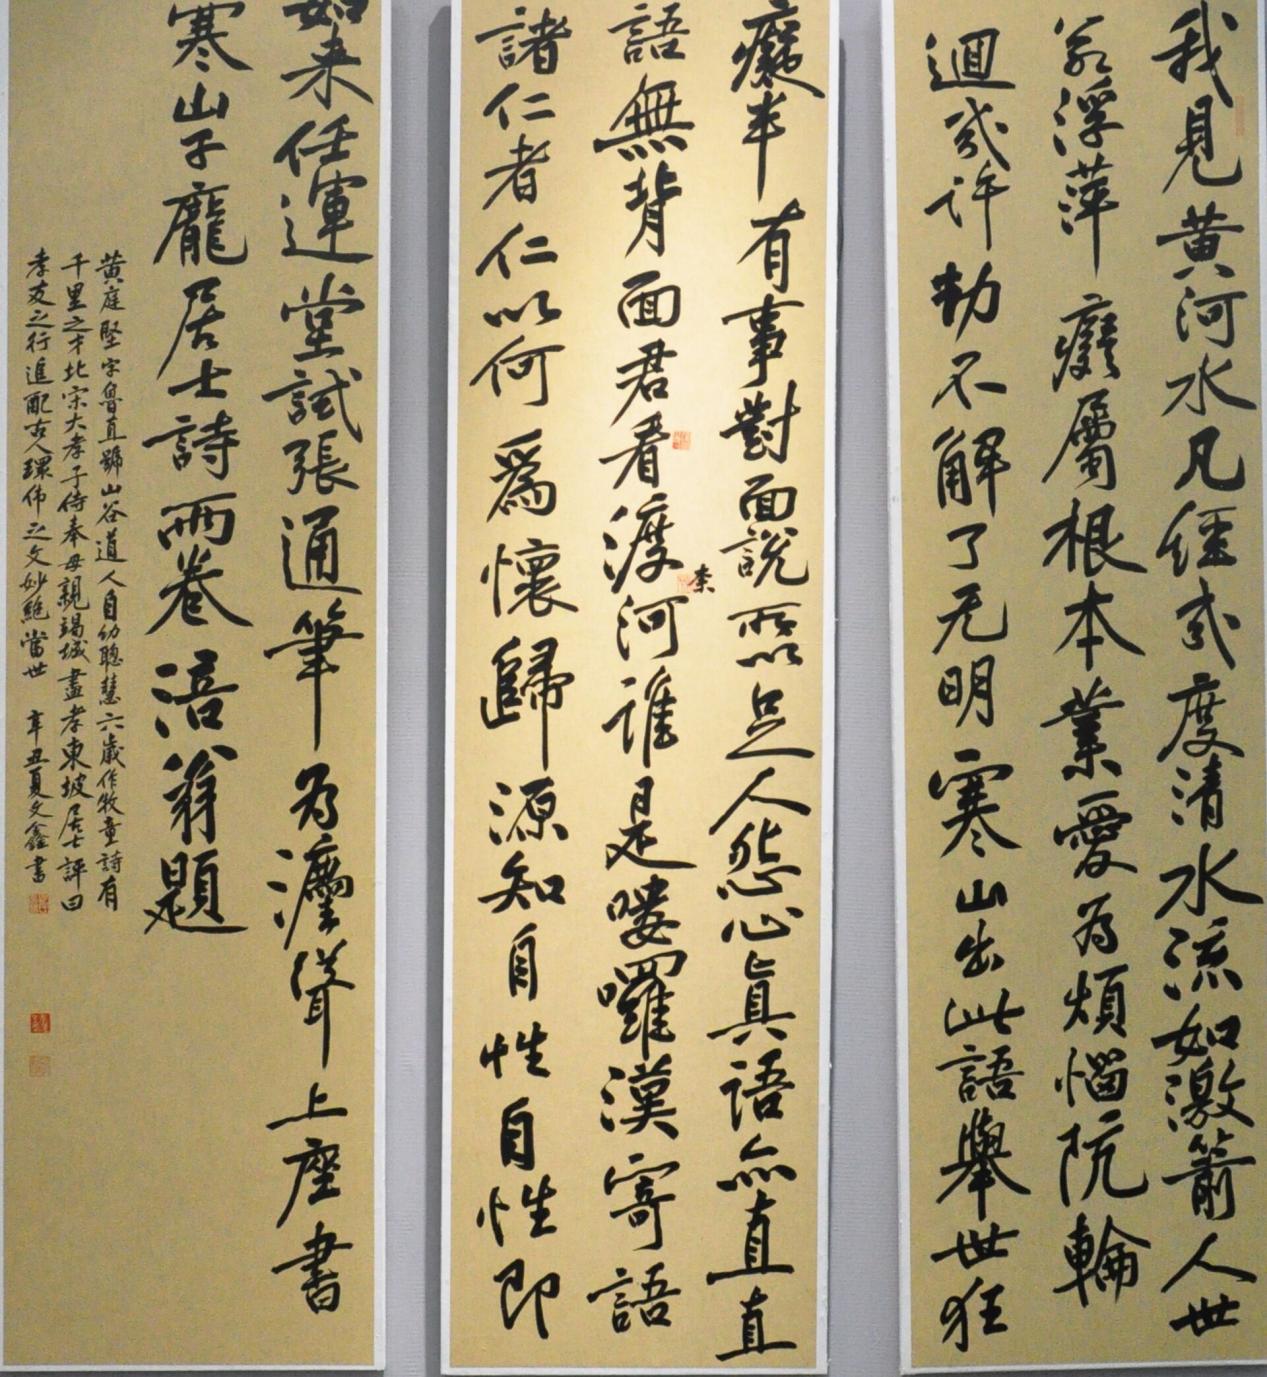 我見黃河水凡經或度清水流如激箭人世
若浮萍癡屬根本業愛為煩惱阬輪
迴或許劫不解了无明寒山出此語舉世狂
癡半有事對面說所以足人怨心真語亦直直
語無背面君看渡河誰是嘍囉漢寄語
諸仁者仁以何為懷歸源知自性自性即
如来任運堂試張通筆為瀘聳上座書
寒山子龐居士詩兩卷涪翁題
黃庭堅字魯直號山谷道人自幼聰慧六歲作牧童詩有
千里之才北宋大孝子侍奉母親竭誠盡孝東坡居士評曰
孝友之行進配古人瑰伟之文妙絕當世 辛丑夏文鑫書
柰